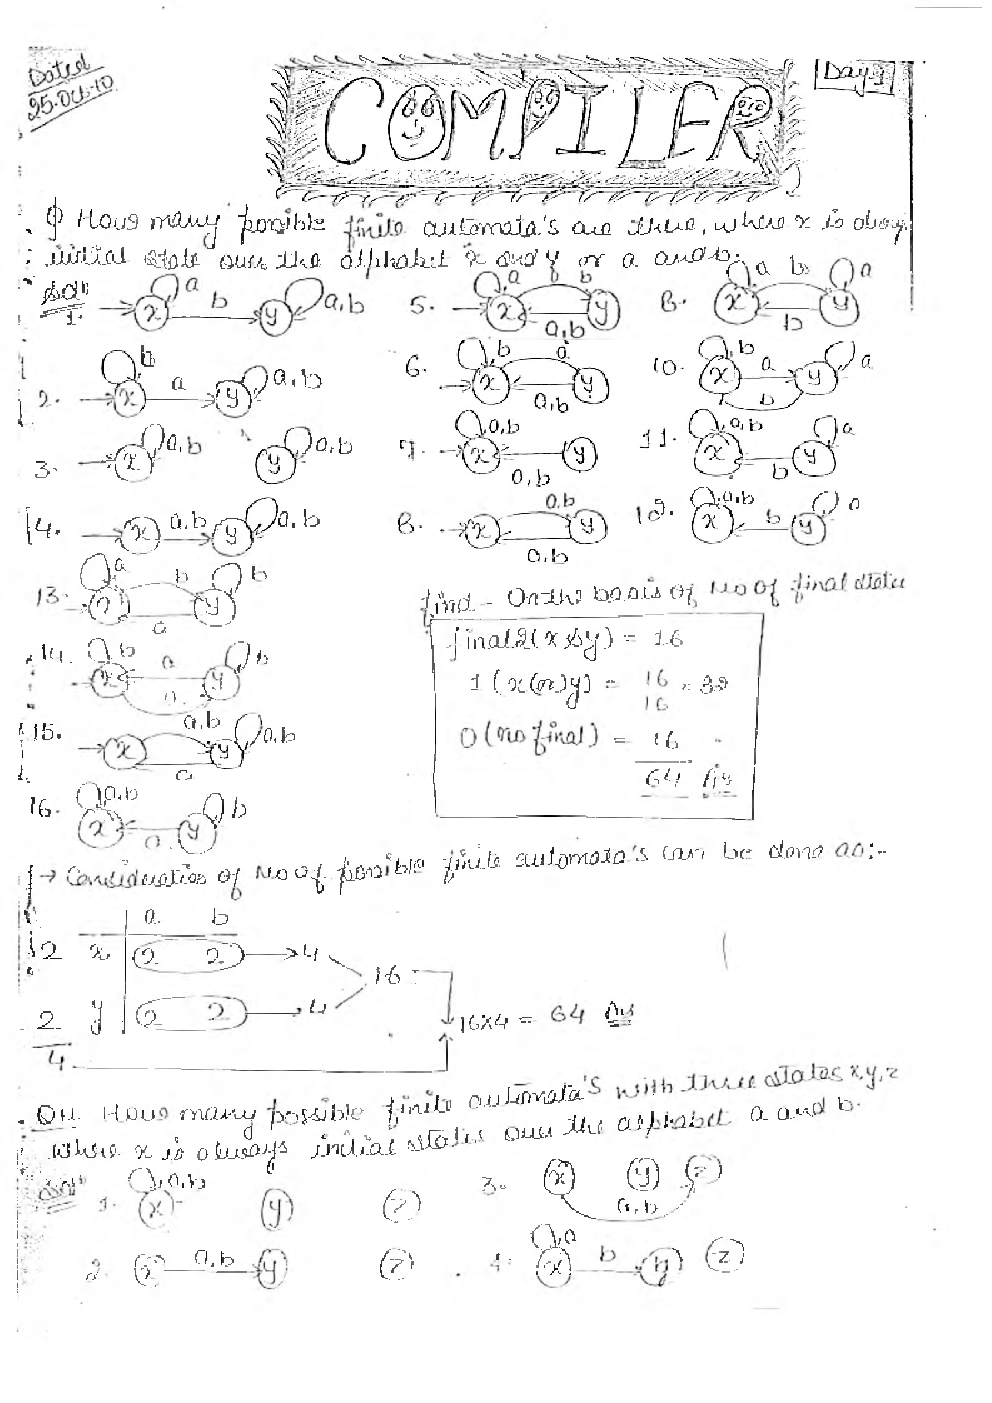 Dated
25.Oct.10
Day 1
COMPILER
Q How many possible finite automata's are there, where x is alway
initial state over the alphabet x and y or a and b.
Solⁿ
1. x a b y a,b
2. x b a y a,b
3. x a,b y a,b
4. x a,b y a,b
5. x a b b y a,b
6. x b a y a,b
7. x a,b y a,b
8. x a,b y a,b
8. x a b y a b
10. x b a y a b
11. x a,b y a b
12. x a,b y a b
13. x a b y b a
14. x b a y b a
15. x a,b y a,b a
16. x a,b y b a
find - On the basis of No of final states
final 2(x & y) = 16
1 (x (or) y) = 16 16 = 32
0 (no final) = 16
64 Ans
→ Consideration of No of possible finite automata's can be done as:-
a b
2 x 2 2 → 4
16
2 y 2 2 → 4
16x4 = 64 Ans
4
Qu. How many possible finite automata's with three states x,y,z
where x is always initial states over the alphabet a and b.
Solⁿ
1. x a,b y z
2. x a,b y z
3. x y z a,b
4. x a b y z